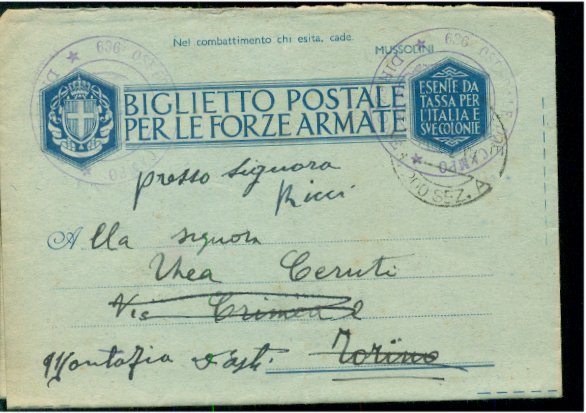 Nel combattimento chi esita, cade.
MUSSOLINI
BIGLIETTO POSTALE
PER LE FORZE ARMATE
ESENTE DA
TASSA PER
L'ITALIA E
SVE COLONIE
presso signora
Ricci
Alla signora
Thea Ceruti
Via Crimea 2
Montafia d'Asti Torino